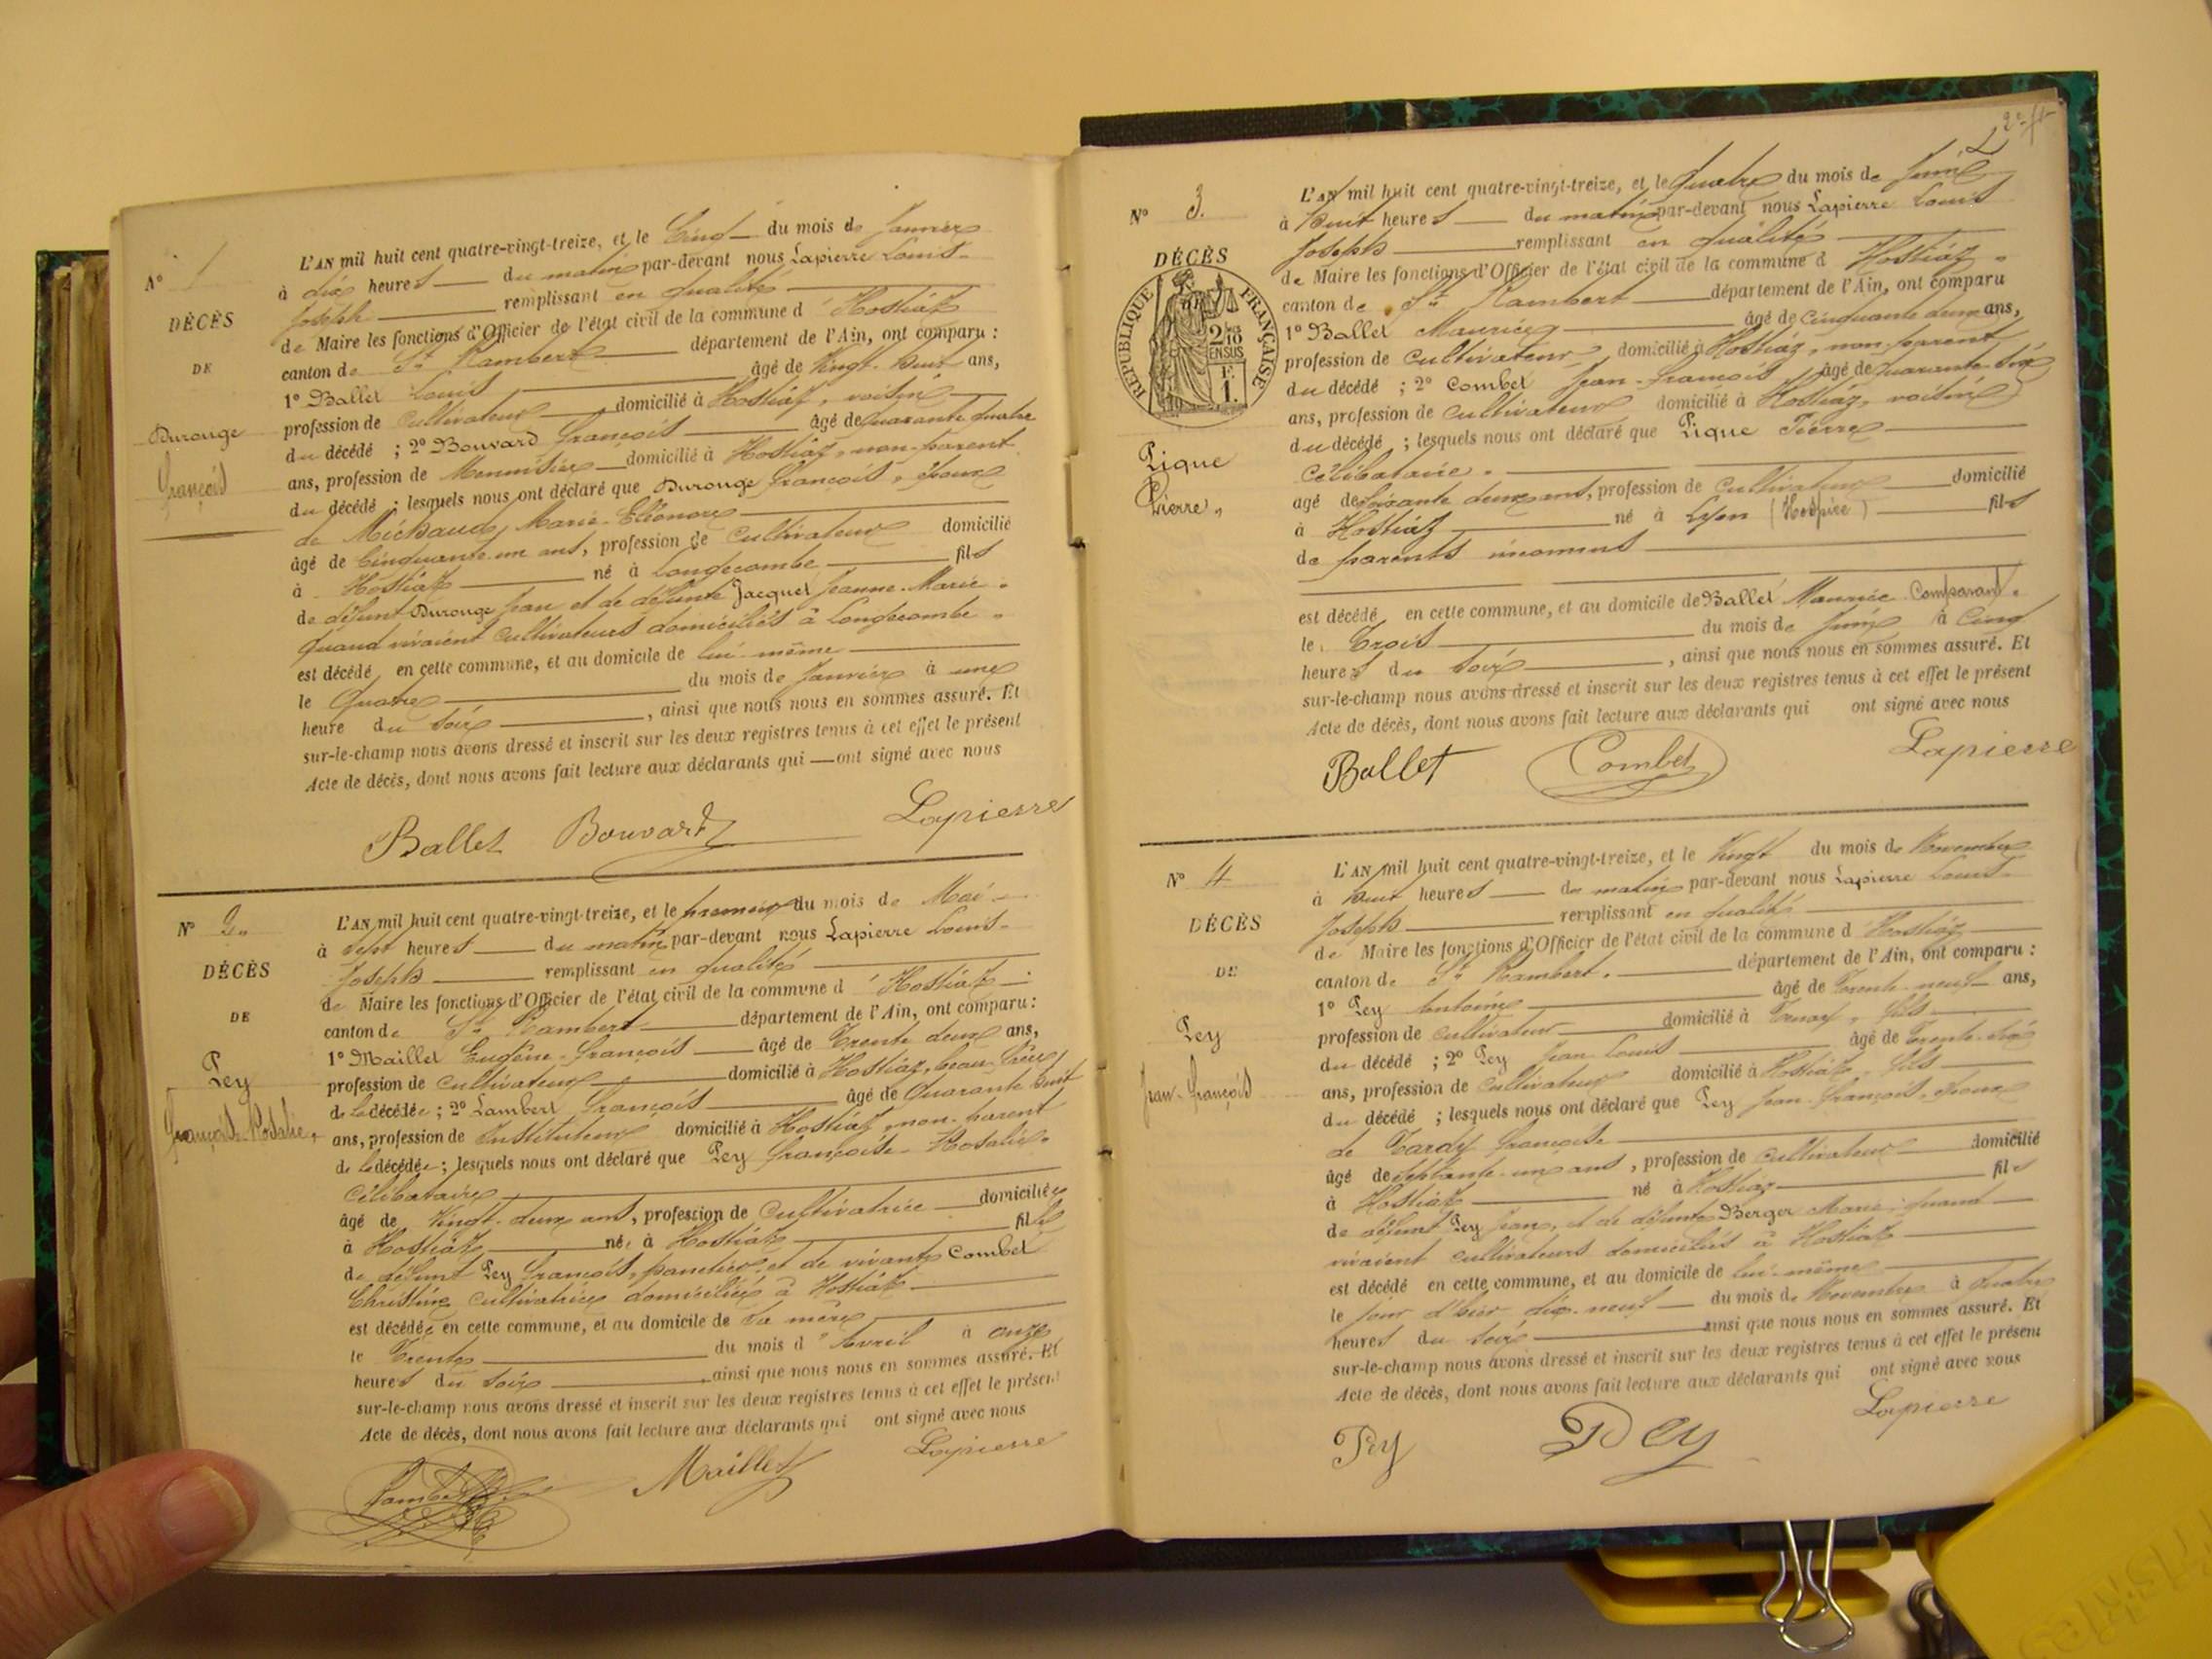 N° 1
DÉCÈS
DE
Durouge
François
L'AN mil huit cent quatre-vingt-treize, et le Cinq du mois de Janvier
à dix heures du matin par-devant nous Lapierre Louis-
Joseph remplissant en qualité
de Maire les fonctions d'Officier de l'état civil de la commune d'Hostiaz
canton de St Rambert département de l'Ain, ont comparu :
1° Ballet Louis âgé de Vingt-huit ans,
profession de Cultivateur domicilié à Hostiaz, voisin
du décédé ; 2° Bouvard François âgé de quarante quatre
ans, profession de Menuisier domicilié à Hostiaz, non-parent
du décédé ; lesquels nous ont déclaré que Durouge François, époux
de Michaud, Marie-Eléonore
âgé de Cinquante-un ans, profession de Cultivateur domicilié
à Hostiaz né à Longecombe fils
de défunt Durouge Jean et de défunte Jacquet Jeanne-Marie
quand vivaient cultivateurs domiciliés à Longecombe
est décédé en cette commune, et au domicile de lui-même
le Quatre du mois de Janvier à une
heure du soir , ainsi que nous nous en sommes assuré. Et
sur-le-champ nous avons dressé et inscrit sur les deux registres tenus à cet effet le présent
Acte de décès, dont nous avons fait lecture aux déclarants qui — ont signé avec nous
Ballet Bouvard Lapierre
N° 2
DÉCÈS
DE
Pey
Françoise-Rosalie
L'AN mil huit cent quatre-vingt-treize, et le premier du mois de Mai
à sept heures du matin par-devant nous Lapierre Louis-
Joseph remplissant en qualité
de Maire les fonctions d'Officier de l'état civil de la commune d'Hostiaz
canton de St Rambert département de l'Ain, ont comparu :
1° Maillet Eugène-François âgé de Trente deux ans,
profession de cultivateur domicilié à Hostiaz, beau-frère
de la décédée ; 2° Lambert François âgé de Quarante huit
ans, profession de Instituteur domicilié à Hostiaz, non-parent
de la décédée ; lesquels nous ont déclaré que Pey Françoise-Rosalie
célibataire
âgé de Vingt-deux ans, profession de Cultivatrice domiciliée
à Hostiaz née à Hostiaz fille
de défunt Pey François, et de vivante Combet
Christine cultivatrice domiciliée à Hostiaz
est décédée en cette commune, et au domicile de sa mère
le Trente du mois d'Avril à onze
heures du soir ainsi que nous nous en sommes assuré. Et
sur-le-champ nous avons dressé et inscrit sur les deux registres tenus à cet effet le présent
Acte de décès, dont nous avons fait lecture aux déclarants qui ont signé avec nous
Lambert Maillet Lapierre
2
N° 3.
DÉCÈS
RÉPUBLIQUE FRANÇAISE
2/10
EN SUS
F.
1.
Pique
Pierre
L'AN mil huit cent quatre-vingt-treize, et le quatre du mois de Juin
à huit heures du matin par-devant nous Lapierre Louis
Joseph remplissant en qualité
de Maire les fonctions d'Officier de l'état civil de la commune d Hostiaz
canton de St Rambert département de l'Ain, ont comparu
1° Ballet Maurice âgé de cinquante deux ans,
profession de cultivateur domicilié à Hostiaz, non-parent
du décédé ; 2° Combet Jean-François âgé de quarante-six
ans, profession de cultivateur domicilié à Hostiaz, voisin
du décédé ; lesquels nous ont déclaré que Pique Pierre
célibataire
agé de soixante deux ans, profession de cultivateur domicilié
à Hostiaz né à Lyon (Hospice) fils
de parents inconnus
est décédé en cette commune, et au domicile de Ballet Maurice Comparant
le Trois du mois de Juin à Cinq
heures du soir , ainsi que nous nous en sommes assuré. Et
sur-le-champ nous avons dressé et inscrit sur les deux registres tenus à cet effet le présent
Acte de décès, dont nous avons fait lecture aux déclarants qui ont signé avec nous
Ballet Combet Lapierre
N° 4
DÉCÈS
DE
Pey
Jean-François
L'AN mil huit cent quatre-vingt-treize, et le Vingt du mois de Novembre
à huit heures du matin par-devant nous Lapierre Louis-
Joseph remplissant en qualité
de Maire les fonctions d'Officier de l'état civil de la commune d'Hostiaz
canton de St Rambert département de l'Ain, ont comparu :
1° Pey Antoine âgé de Trente-neuf ans,
profession de cultivateur domicilié à fils
du décédé ; 2° Pey Jean-Louis âgé de Trente-six
ans, profession de Cultivateur domicilié à Hostiaz fils
du décédé ; lesquels nous ont déclaré que Pey Jean-François, époux
de Tardy Françoise
âgé de Septante-un ans, profession de cultivateur domicilié
à Hostiaz né à Hostiaz fils
de défunt Pey Jean, et de défunte Berger Marie quand
vivaient cultivateurs domiciliés à Hostiaz
est décédé en cette commune, et au domicile de lui-même
le jour d'hier dix-neuf du mois de Novembre à quatre
heures du soir ainsi que nous nous en sommes assuré. Et
sur-le-champ nous avons dressé et inscrit sur les deux registres tenus à cet effet le présent
Acte de décès, dont nous avons fait lecture aux déclarants qui ont signé avec nous
Pey Pey Lapierre